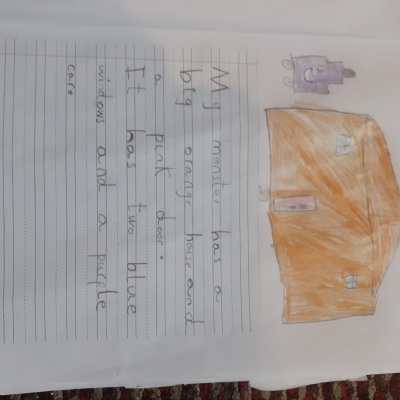 My monster has a
big orange house and
a pink door.
It has two blue
windows and a purple
car.